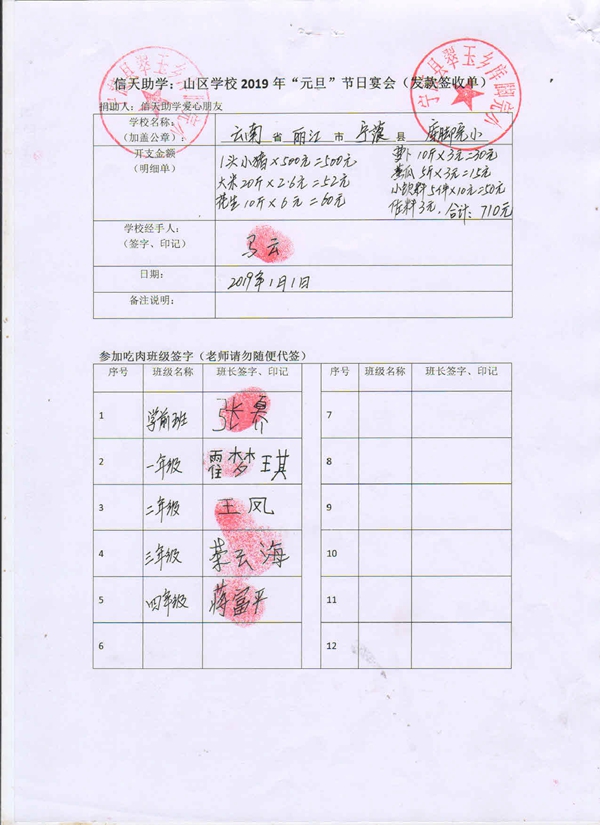 信天助学：山区学校2019年“元旦”节日宴会（发款签收单）
捐助人：信天助学爱心朋友
学校名称： （加盖公章）： 云南 省 丽江 市 宁蒗 县 库脚完小
开支金额 （明细单）
1头小猪×500元=500元 萝卜10斤×3元=30元
大米20斤×2.6元=52元 黄瓜5斤×3元=15元
花生10斤×6元=60元 小饮料5件×10元=50元
佐料3元. 合计：710元
学校经手人： （签字、印记） 马云
日期： 2019年1月1日
备注说明：
参加吃肉班级签字（老师请勿随便代签）
序号 班级名称 班长签字、印记 序号 班级名称 班长签字、印记
1 学前班 张 7
2 一年级 霍梦琪 8
3 二年级 王凤 9
4 三年级 荣云海 10
5 四年级 蒋富平 11
6 12